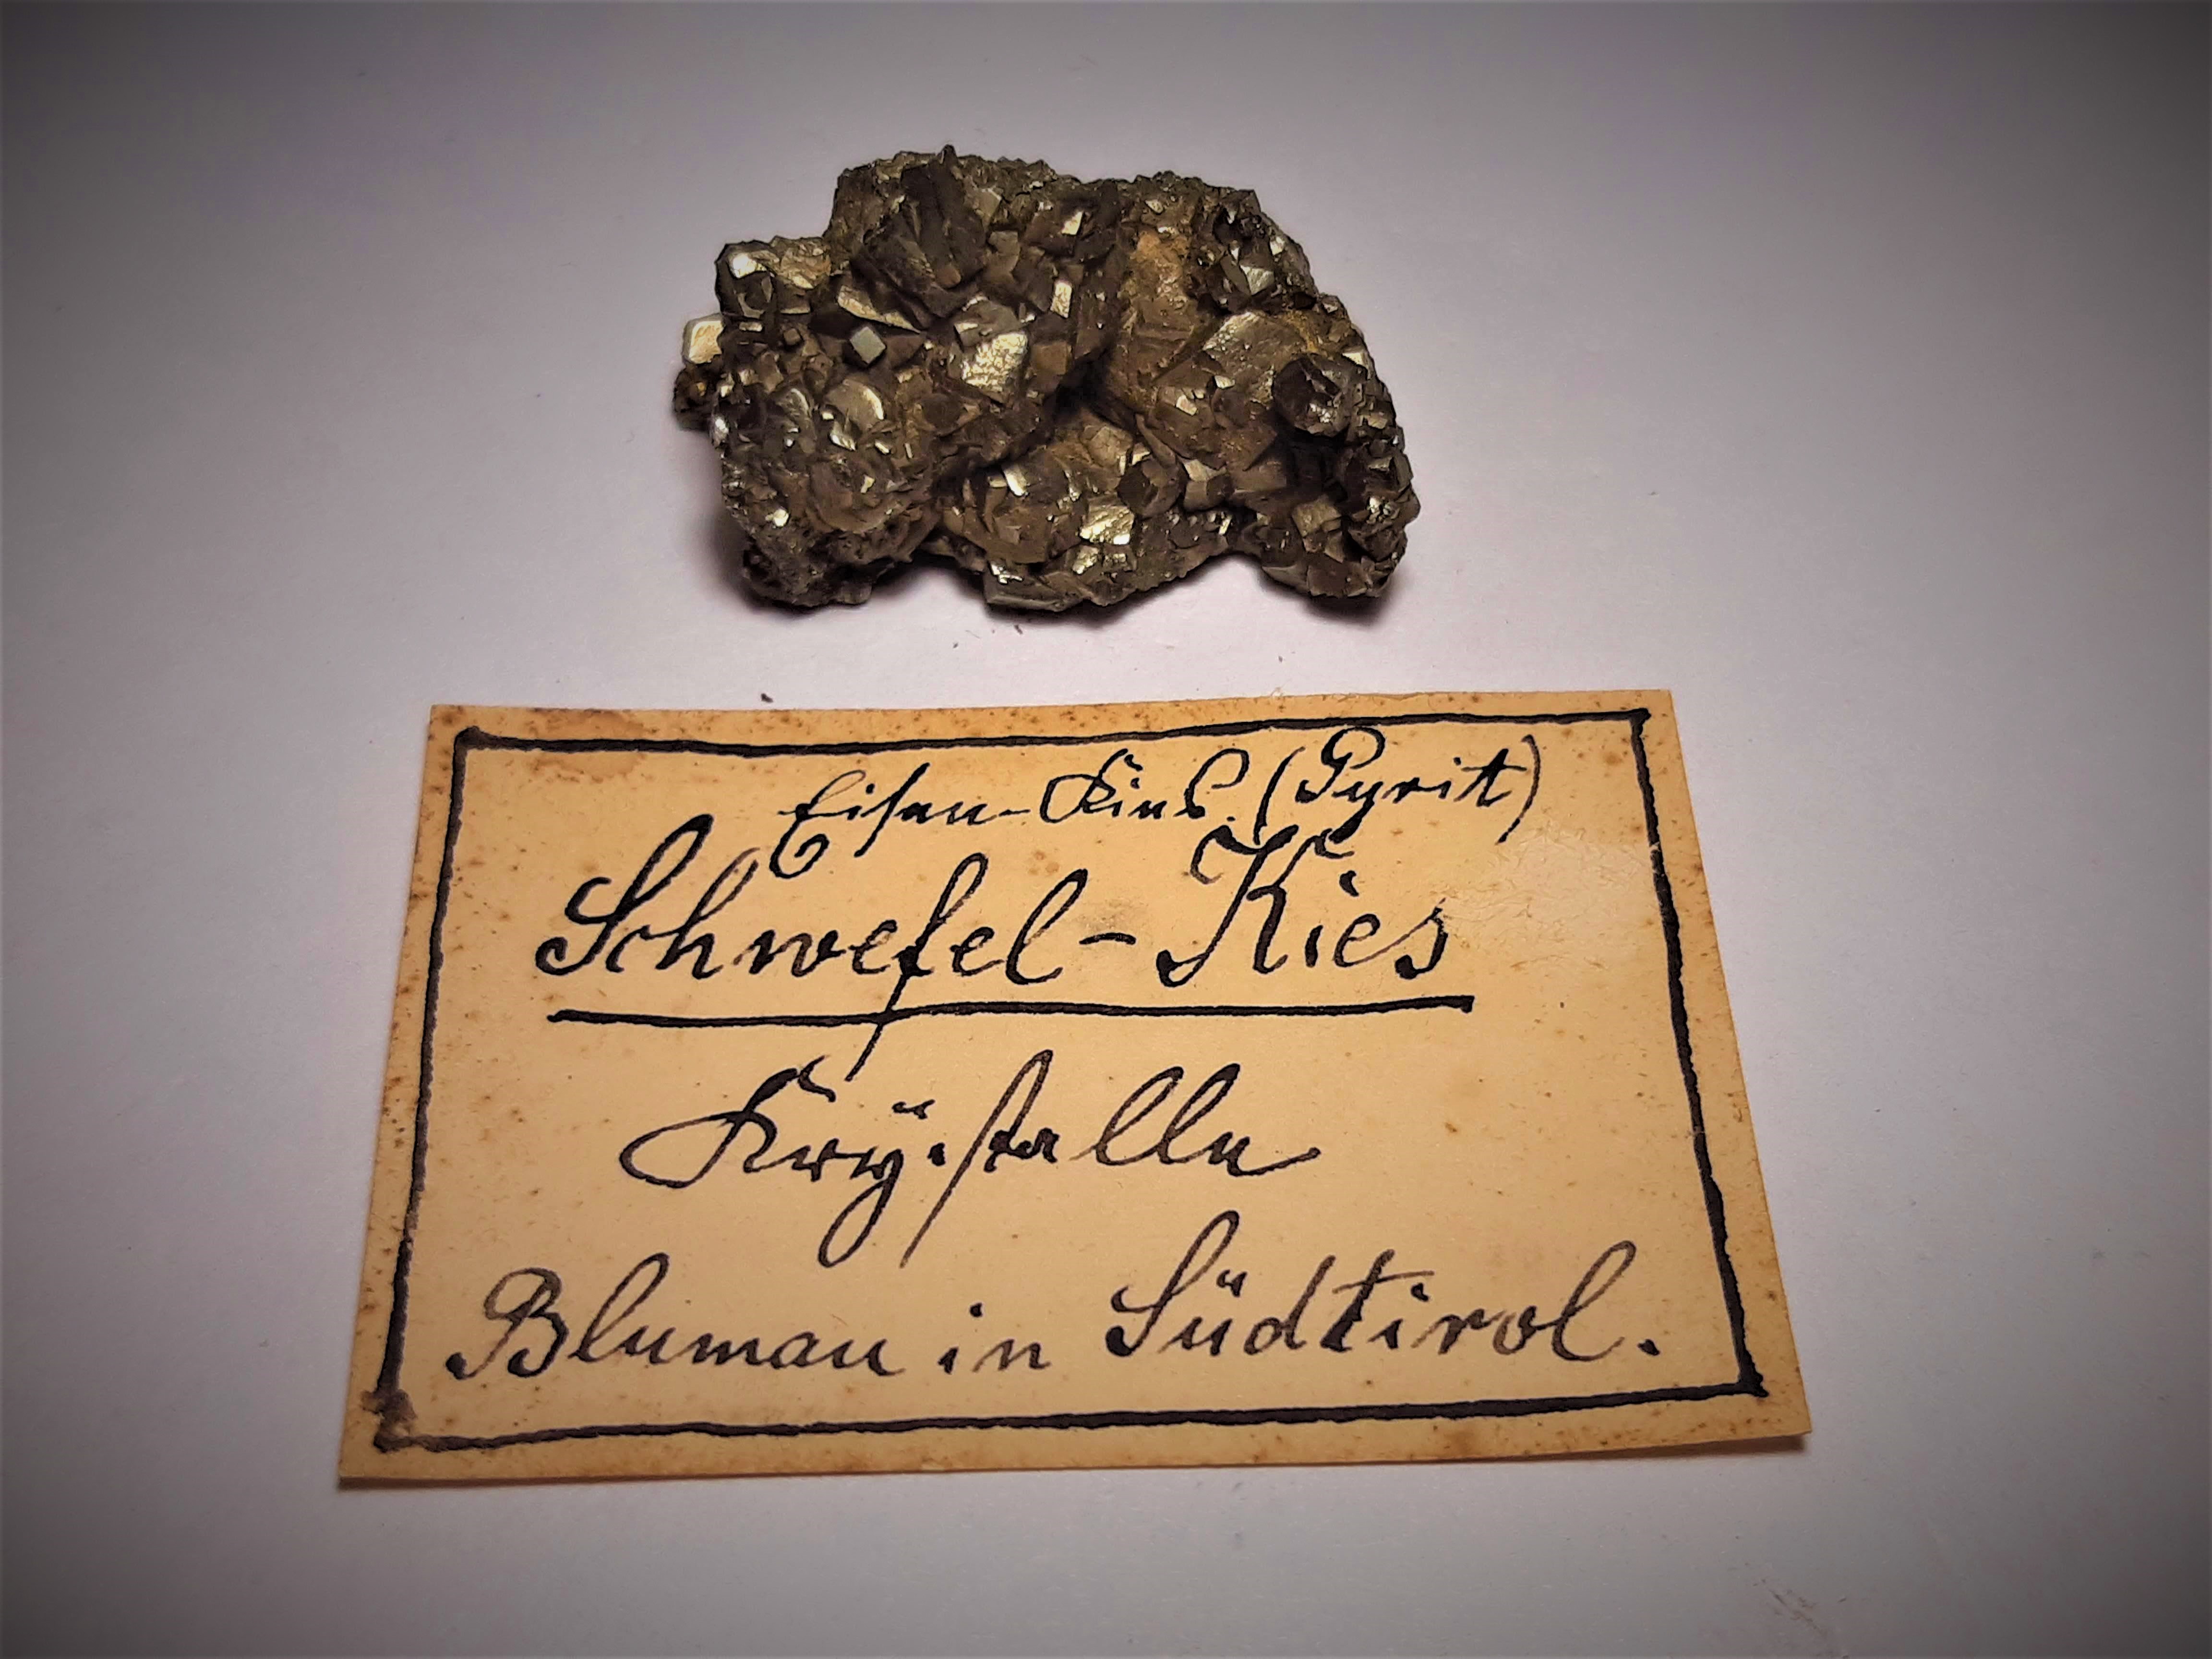 Eisen-Kies. (Pyrit)
Schwefel-Kies
Krÿstalle
Blumau in Südtirol.